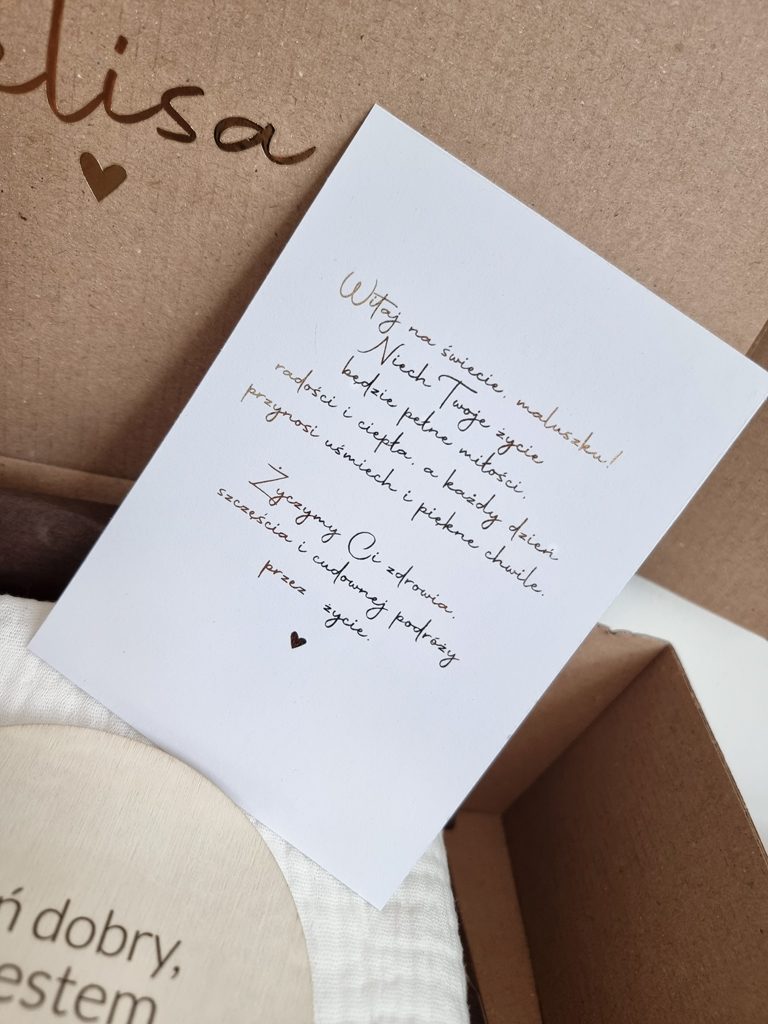 elisa
Witaj na świecie, maluszku!
Niech Twoje życie
będzie pełne miłości,
radości i ciepła, a każdy dzień
przynosi uśmiech i piękne chwile.
Życzymy Ci zdrowia,
szczęścia i cudownej podróży
przez życie.
ń dobry,
estem